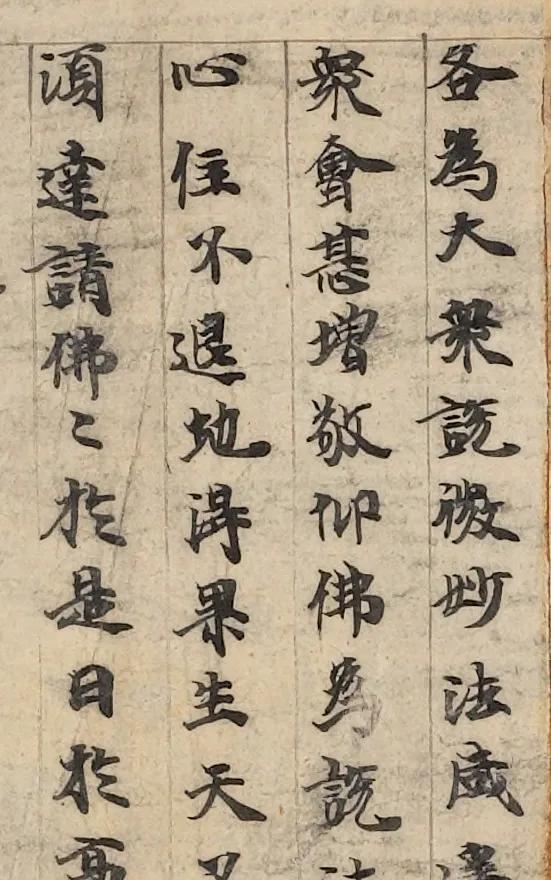 各為大衆説微妙法咸
衆會甚增敬仰佛為説
心住不退地得果生天
湏達請佛〻於是日於高